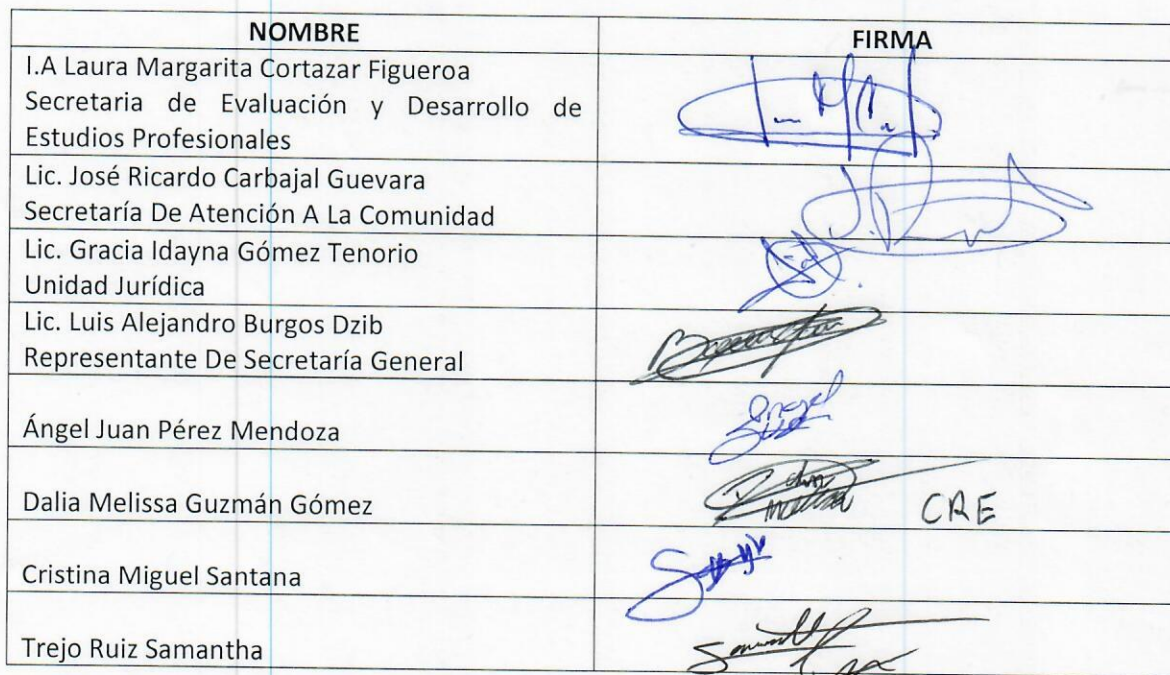 NOMBRE
FIRMA
I.A Laura Margarita Cortazar Figueroa
Secretaria de Evaluación y Desarrollo de
Estudios Profesionales
Lic. José Ricardo Carbajal Guevara
Secretaría De Atención A La Comunidad
Lic. Gracia Idayna Gómez Tenorio
Unidad Jurídica
Lic. Luis Alejandro Burgos Dzib
Representante De Secretaría General
Ángel Juan Pérez Mendoza
Dalia Melissa Guzmán Gómez
CRE
Cristina Miguel Santana
Trejo Ruiz Samantha